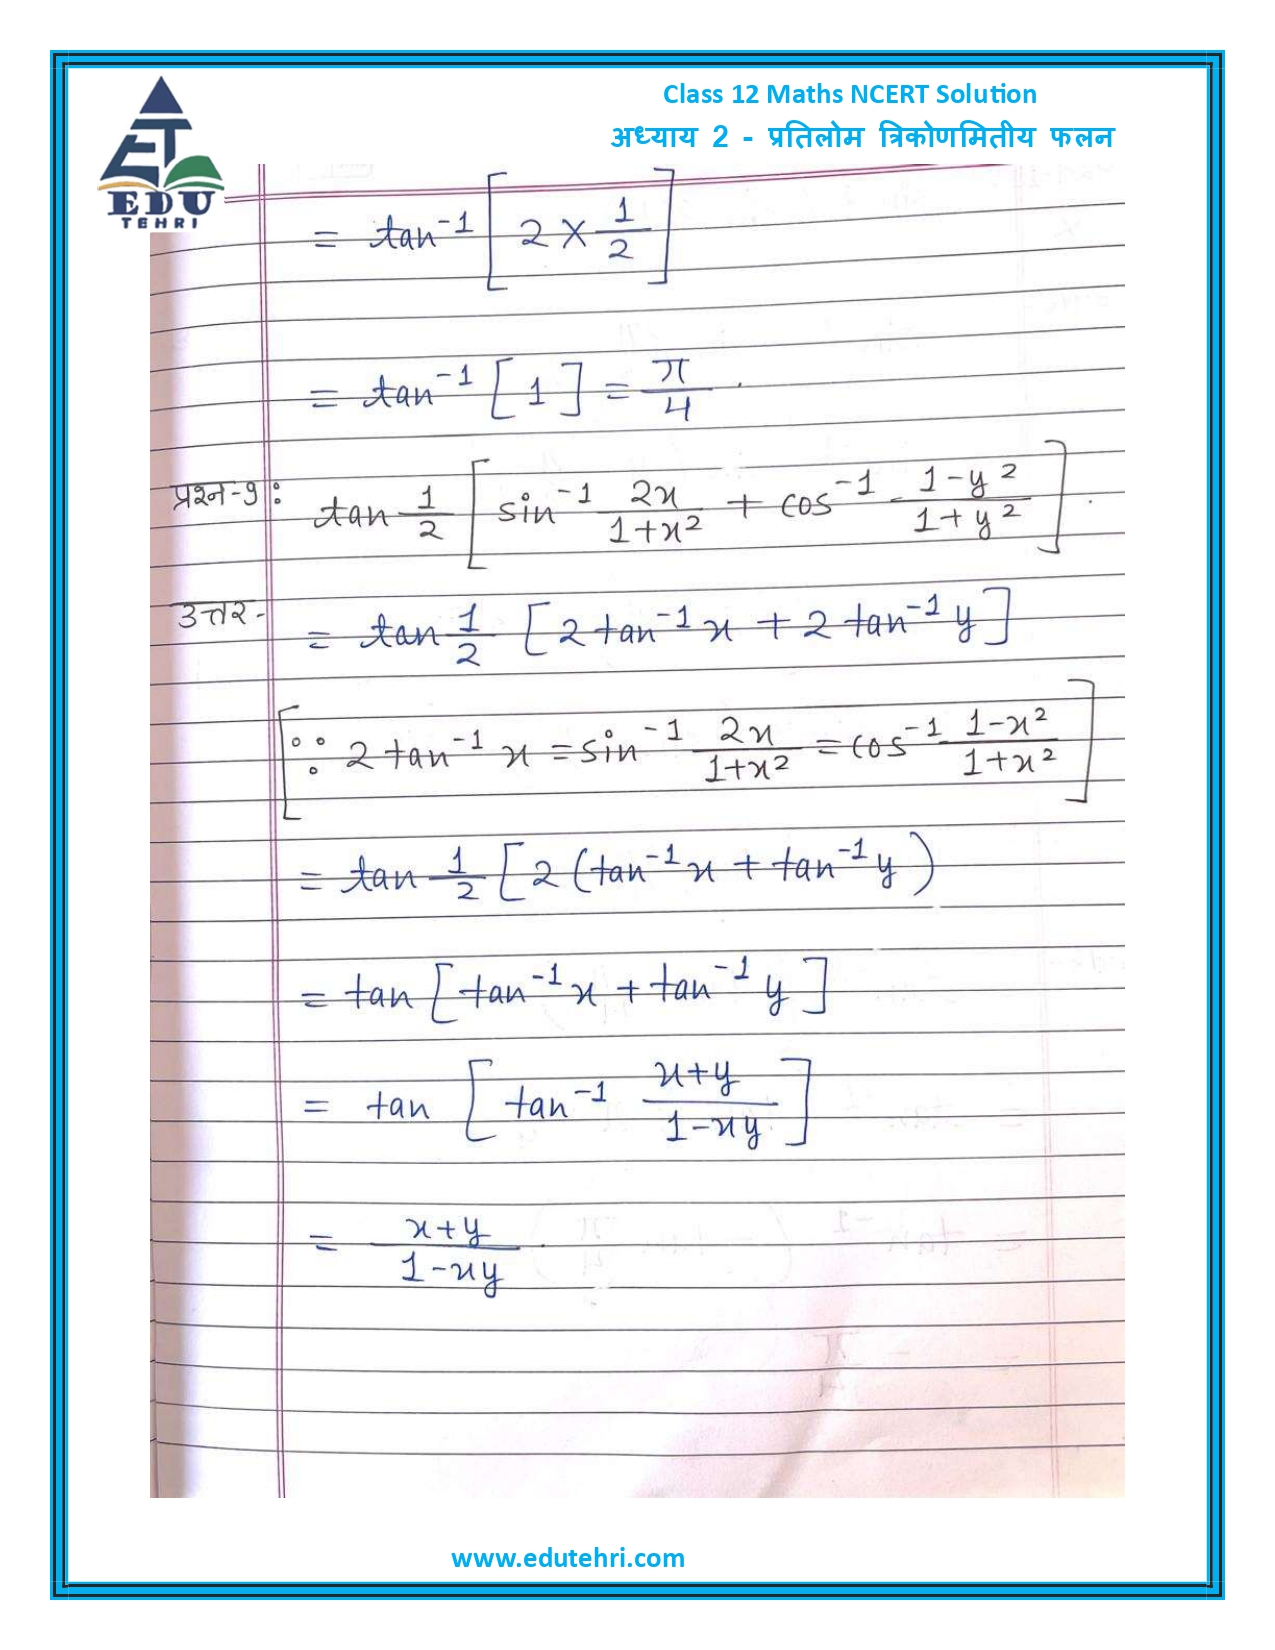 Class 12 Maths NCERT Solution
अध्याय 2 - प्रतिलोम त्रिकोणमितीय फलन
EDU
TEHRI
= tan⁻¹ [2 × 1/2]
= tan⁻¹ [1] = π/4 .
प्रश्न-9: tan 1/2 [sin⁻¹ 2x/1+x² + cos⁻¹ 1-y²/1+y²] .
उत्तर- = tan 1/2 [2 tan⁻¹ x + 2 tan⁻¹ y]
[∵ 2 tan⁻¹ x = sin⁻¹ 2x/1+x² = cos⁻¹ 1-x²/1+x²]
= tan 1/2 [2 (tan⁻¹ x + tan⁻¹ y)
= tan [tan⁻¹ x + tan⁻¹ y]
= tan [tan⁻¹ x+y/1-xy]
= x+y/1-xy .
www.edutehri.com